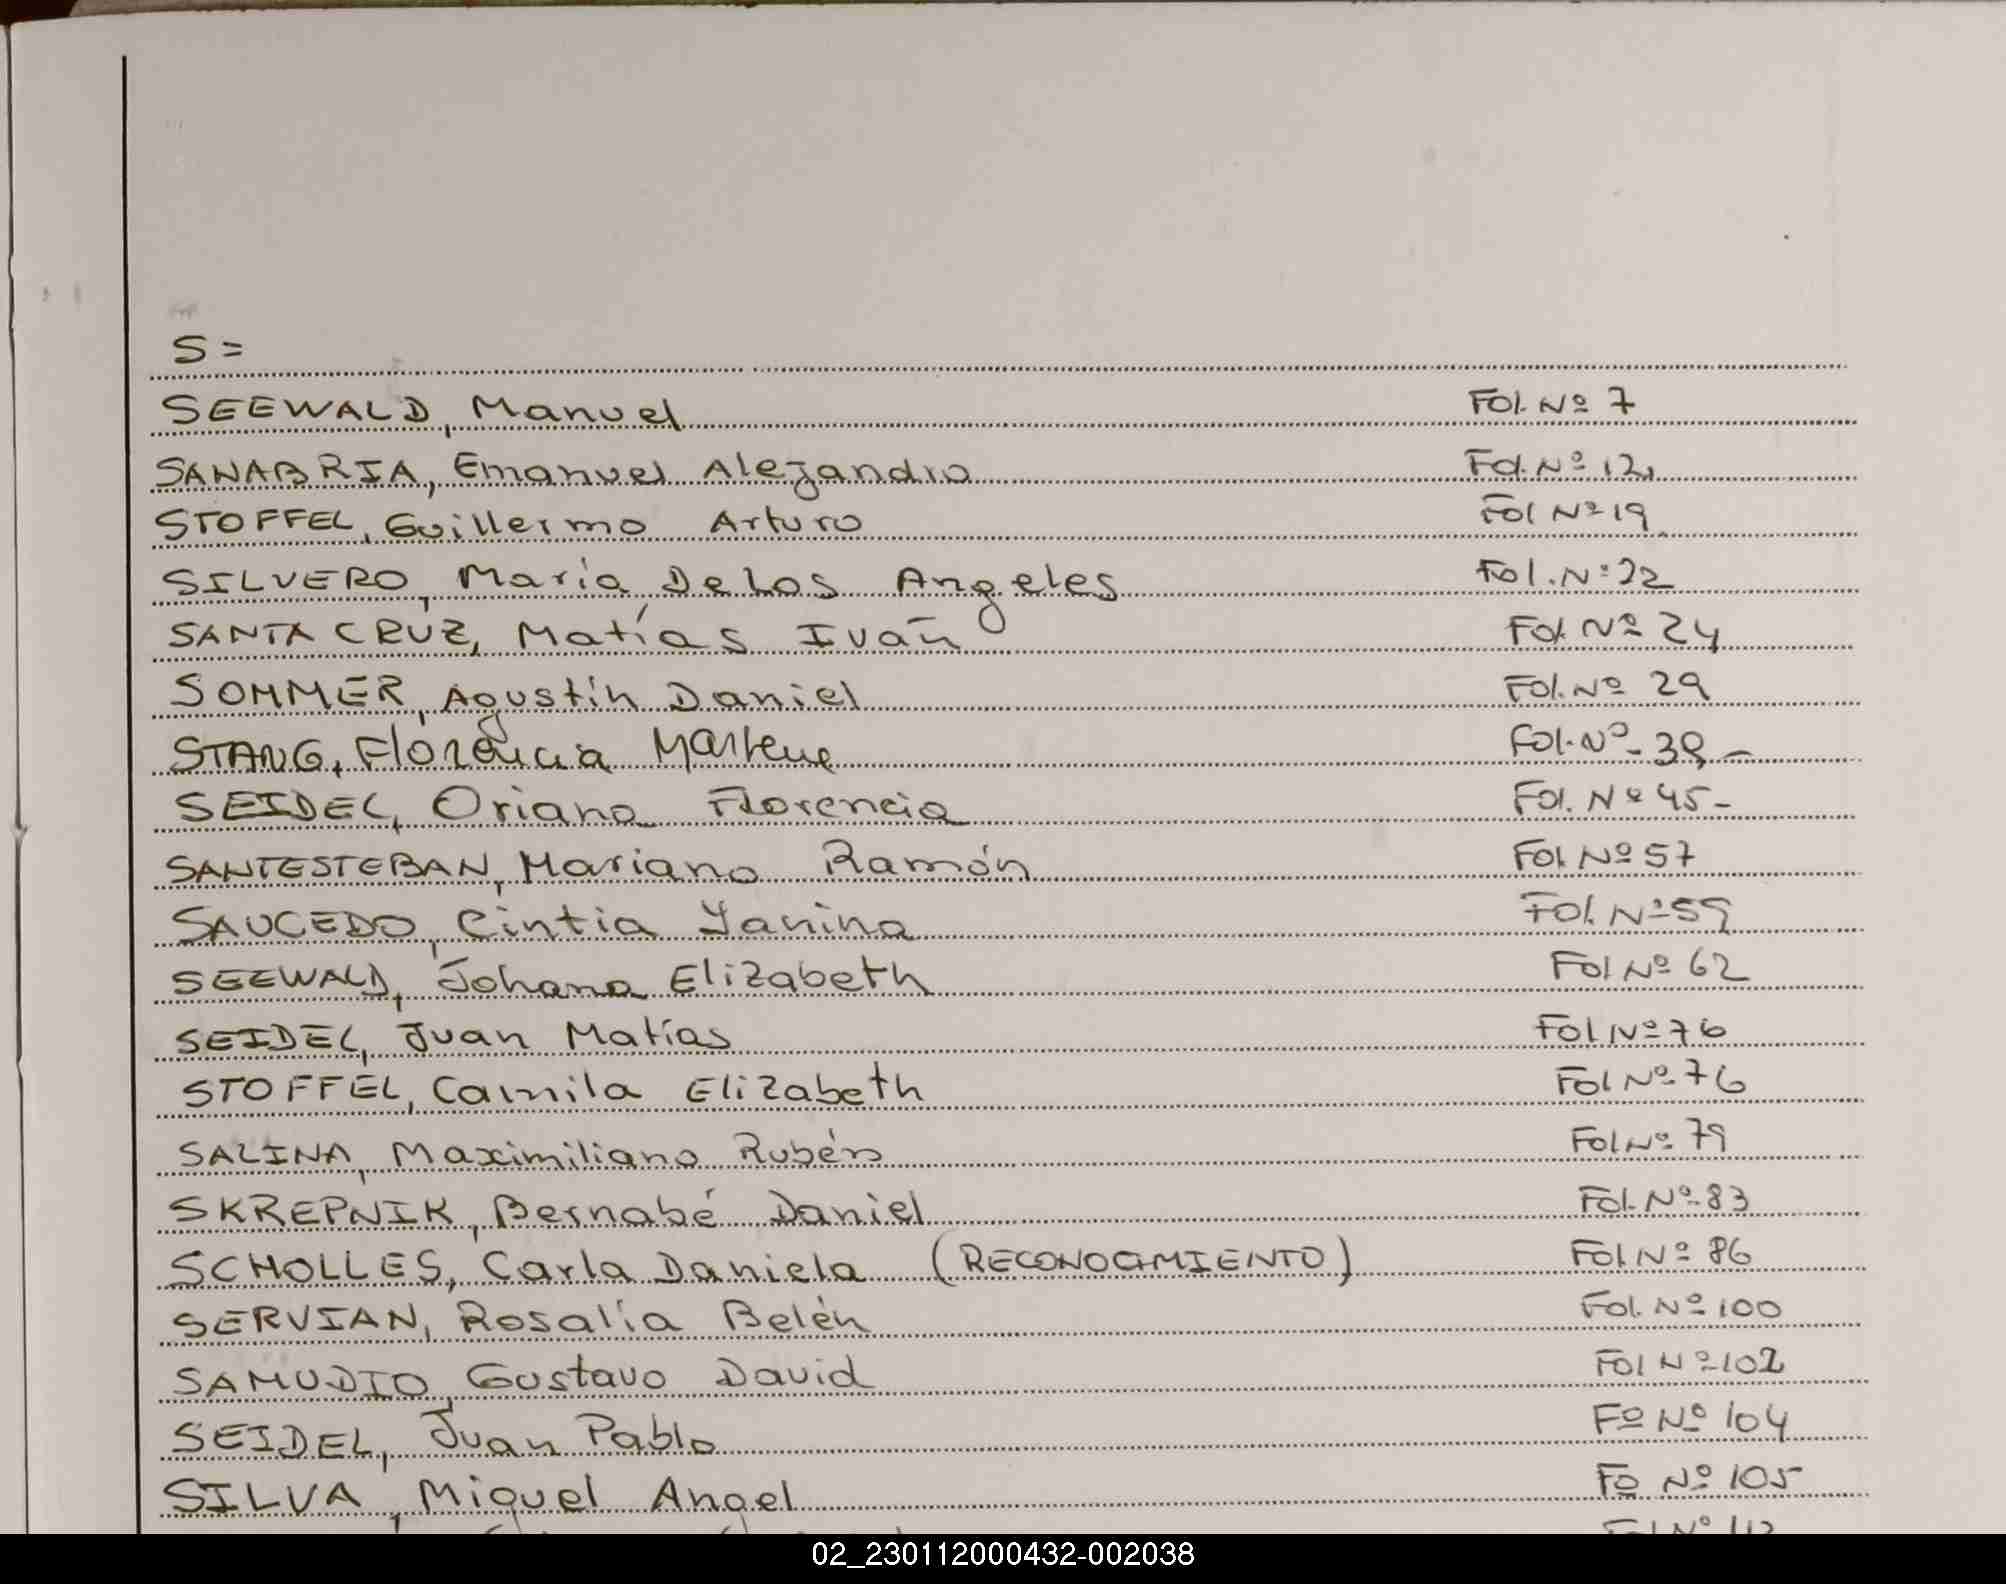 S=
SEEWALD, Manuel Fol. Nº 7
SANABRIA, Emanuel Alejandro Fol. Nº 12
STOFFEL, Guillermo Arturo Fol Nº 19
SILVERO, María De Los Angeles Fol. Nº 22
SANTA CRUZ, Matías Iván Fol. Nº 24
SOMMER, Agustín Daniel Fol. Nº 29
STANG, Florencia Marlene Fol. Nº 39
SEIDEL, Oriana Florencia Fol. Nº 45-
SANTESTEBAN, Mariano Ramón Fol. Nº 57
SAUCEDO, Cintia Yanina Fol. Nº 59
SEEWALD, Johana Elizabeth Fol Nº 62
SEIDEL, Juan Matías Fol Nº 76
STOFFEL, Camila Elizabeth Fol Nº 76
SALINA, Maximiliano Rubén Fol Nº 79
SKREPNIK, Bernabé Daniel Fol. Nº 83
SCHOLLES, Carla Daniela (RECONOCIMIENTO) Fol. Nº 86
SERVIAN, Rosalía Belén Fol. Nº 100
SAMUDIO, Gustavo David Fol Nº 102
SEIDEL, Juan Pablo Fº Nº 104
SILVA, Miguel Angel Fº Nº 105
02_230112000432-002038